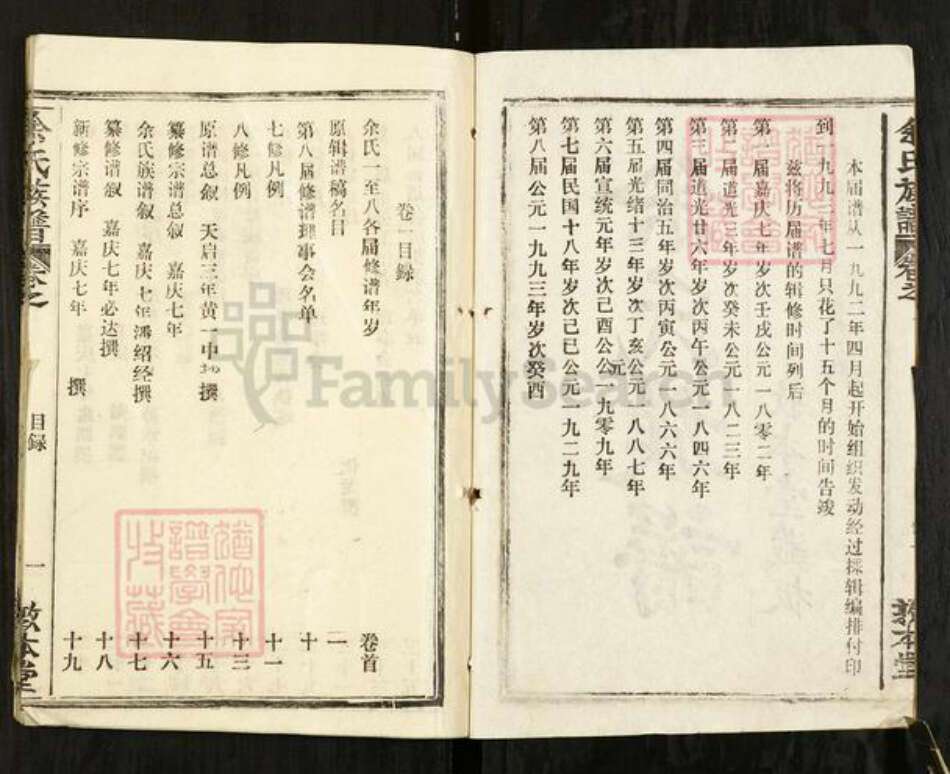 余氏族譜
本届谱从一九九二年四月起开始组织发动经过採辑编排付印
到一九九三年七月只花了十五个月的时间告竣
兹将历届谱的辑修时间列后
第一届嘉庆七年岁次壬戌公元一八零二年
第二届道光三年岁次癸未公元一八二三年
第三届道光廿六年岁次丙午公元一八四六年
第四届同治五年岁次丙寅公元一八六六年
第五届光绪十三年岁次丁亥公元一八八七年
第六届宣统元年岁次己酉公元一九零九年
第七届民国十八年岁次己巳公元一九二九年
第八届公元一九九三年岁次癸酉
卷一目录
余氏一至八各届修谱年岁 卷首
原辑谱稿名目 一
第八届修谱理事会名单 十
七修凡例 十一
八修凡例 十三
原谱总叙 天启三年黄一中 撰 十五
纂修宗谱总叙 嘉庆七年 十六
余氏族谱叙 嘉庆七年潘绍经撰 十七
纂修谱叙 嘉庆七年必达撰 十八
新修宗谱序 嘉庆七年 撰 十九
余氏族譜
目録
一
敦本堂
FamilySearch